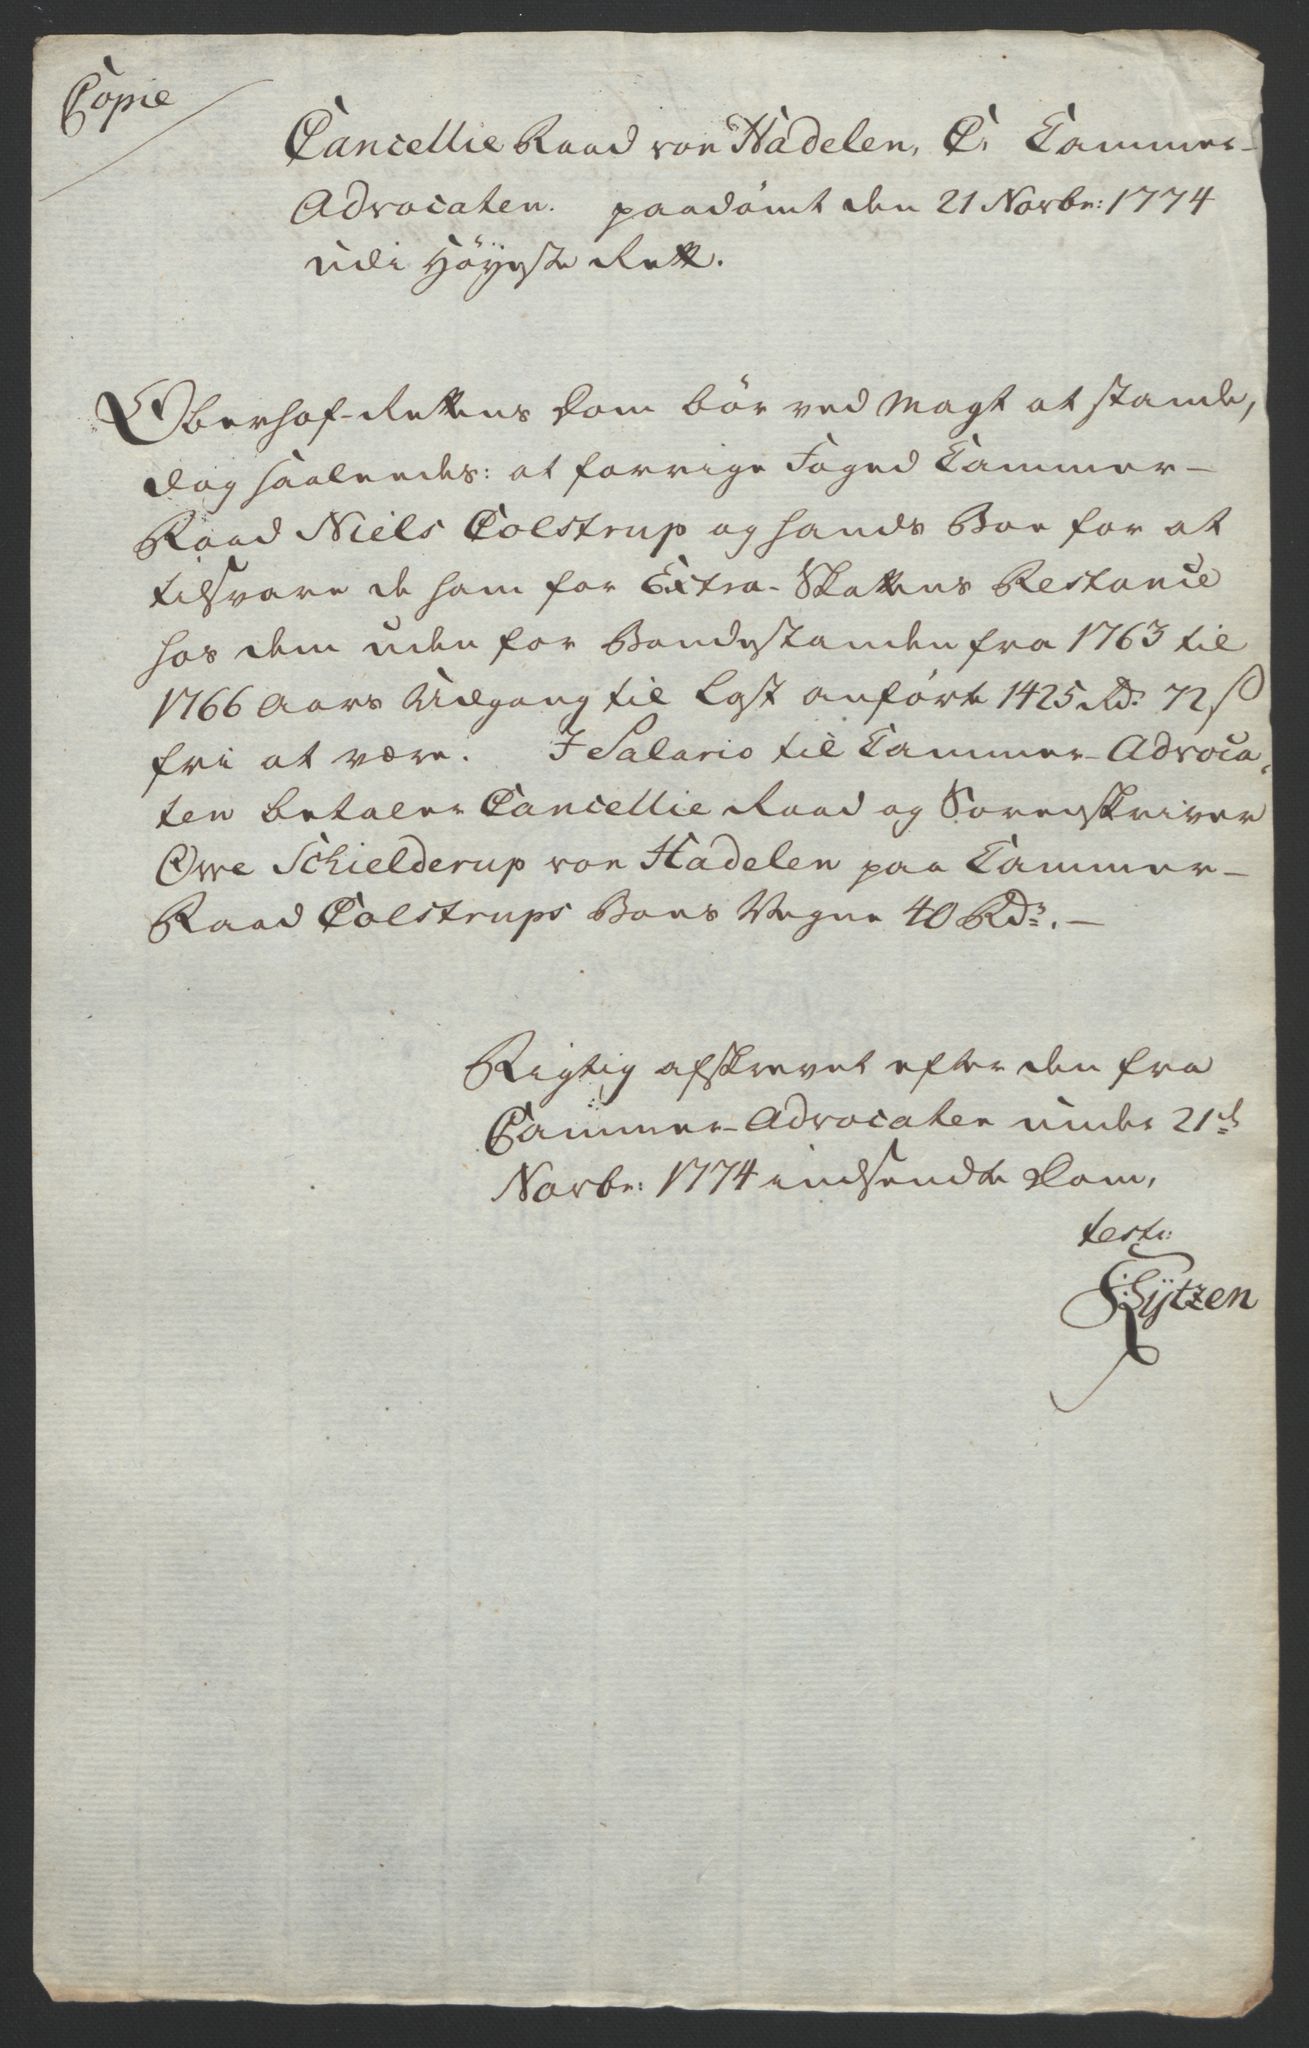 Copie
Cancellie Raad von Hadelen, C. Cammer-
Advocaten. paadömt den 21 Novbr: 1774
udi Höyeste Rett.
Oberhof-Rettens Dom bör ved Magt at stande,
dog saaleedes: at forrige Foged Cammer-
Raad Niels Colstrup og hands Boe for at
tilsvare de ham for Extra-Skattens Restance
hos dem uden for Bondestanden fra 1763 til
1766 Aars Udgang til Last anförte 1425 Rd: 72 ß
fri at være. I Salario til Cammer-Advoca-
ten betaler Cancellie Raad og Sorenskriver
Owe Schielderup von Hadelen paa Cammer-
Raad Colstrups Boes Vegne 40 Rdr. —
Rigtig afskrevet efter den fra
Cammer-Advocaten under 21d
Novbr: 1774 indsendte Dom,
test:
Lÿtzen